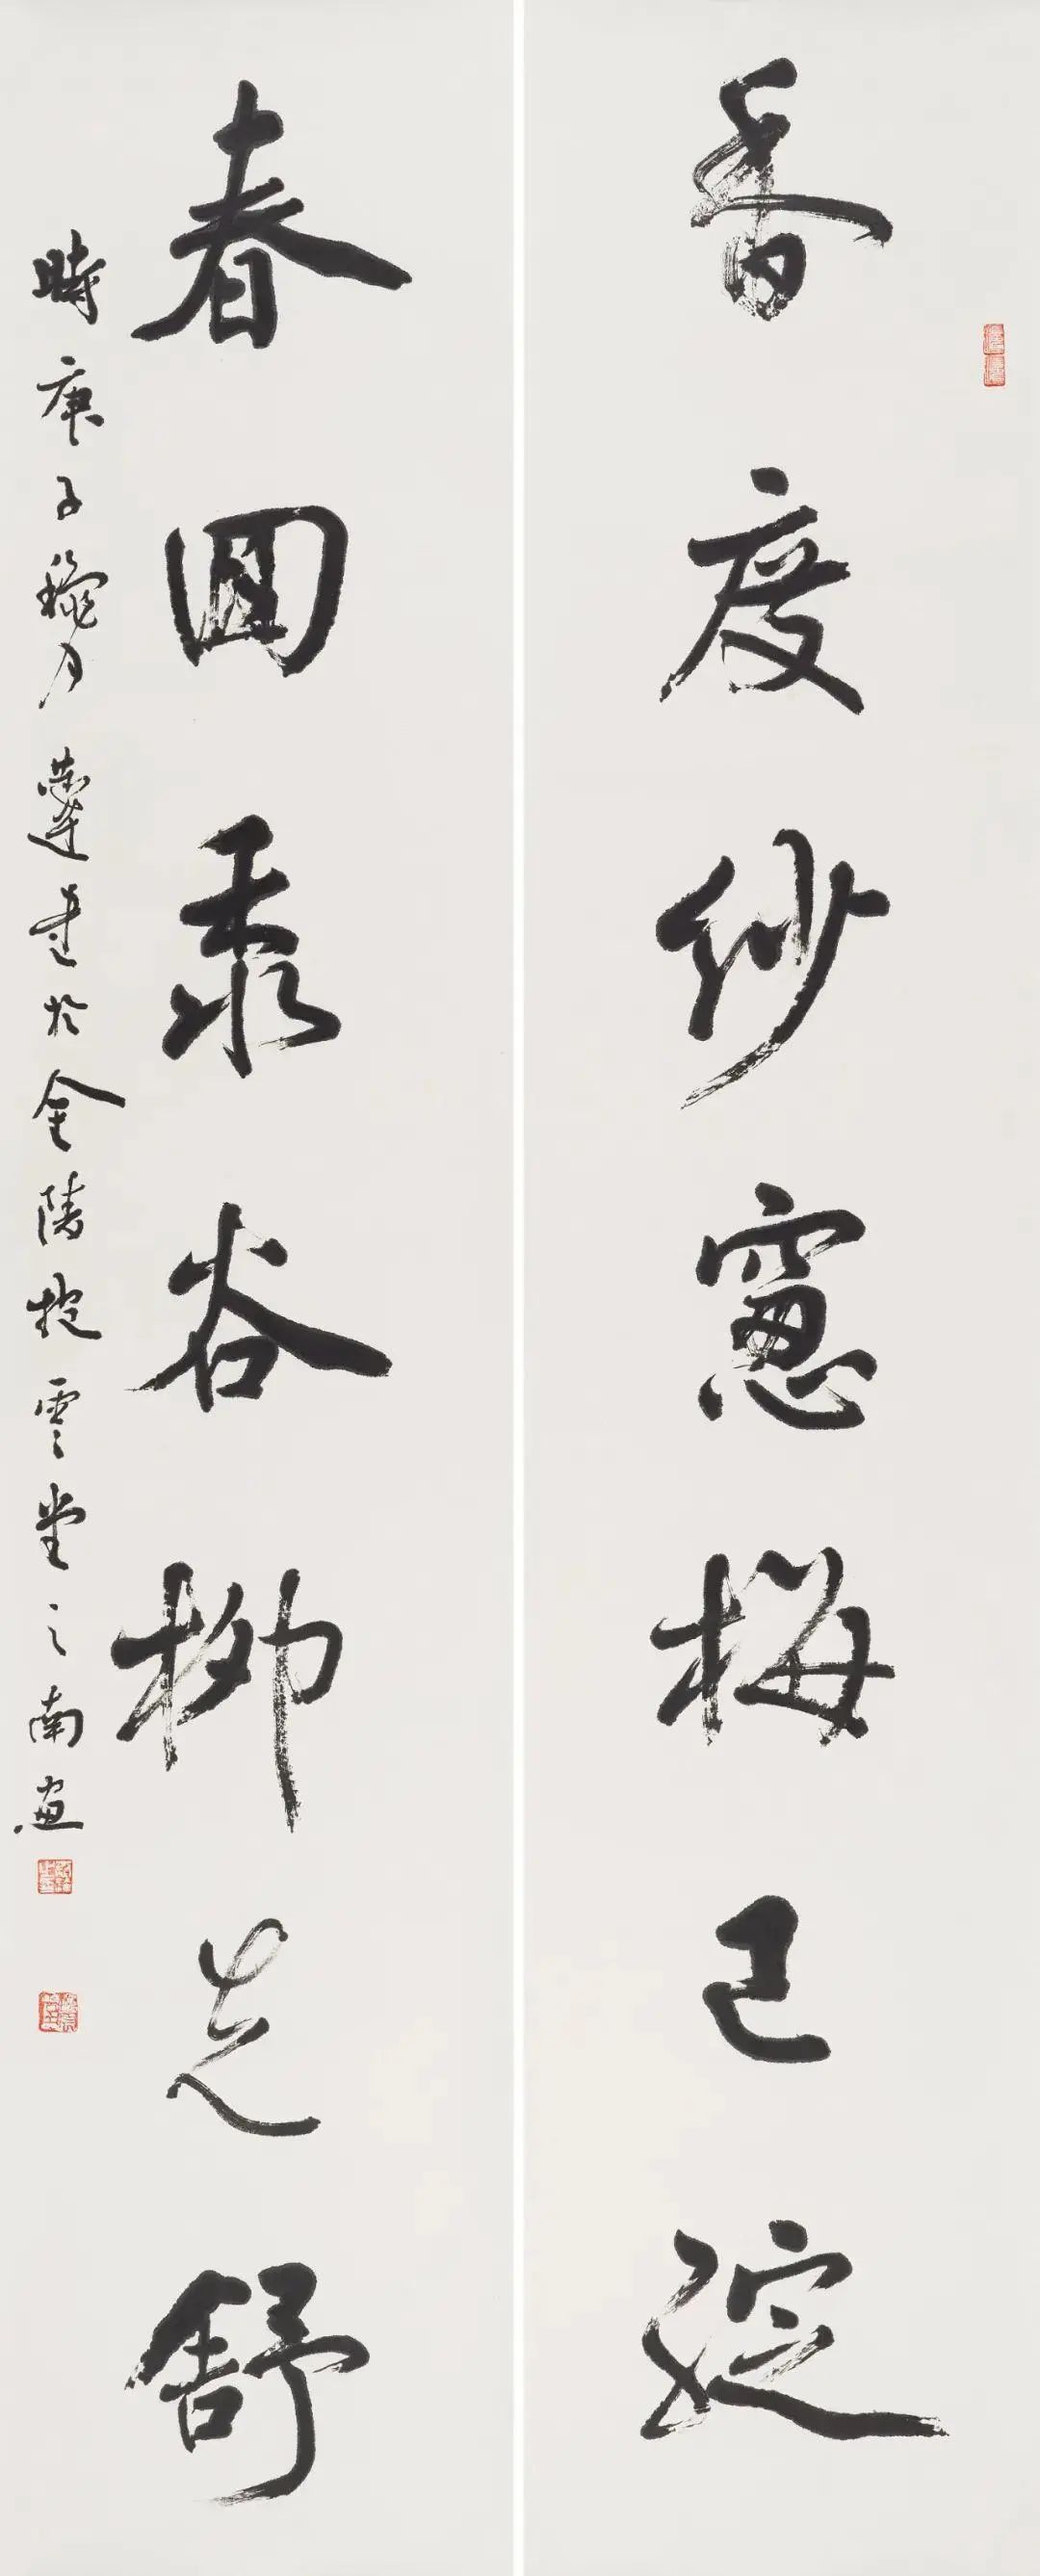 香度紗窻梅已綻
春回黍谷柳先舒
時庚子龝月達書於金陵挹雲堂之南窗